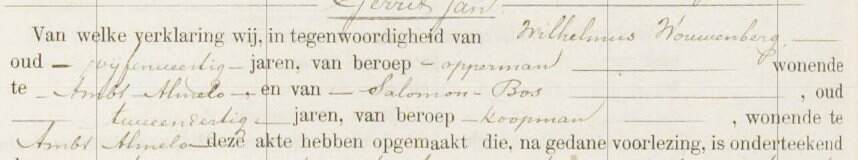 Gerrit Jan
Van welke verklaring wij, in tegenwoordigheid van Wilhelmus Wouwenberg
oud vijfenveertig jaren, van beroep opperman wonende
te Ambt Almelo, en van Salomon Bos, oud
tweeendertig jaren, van beroep koopman, wonende te
Ambt Almelo deze akte hebben opgemaakt die, na gedane voorlezing, is onderteekend